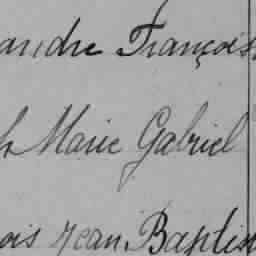 andre François
h Marie Gabriel
ois Jean Baptis